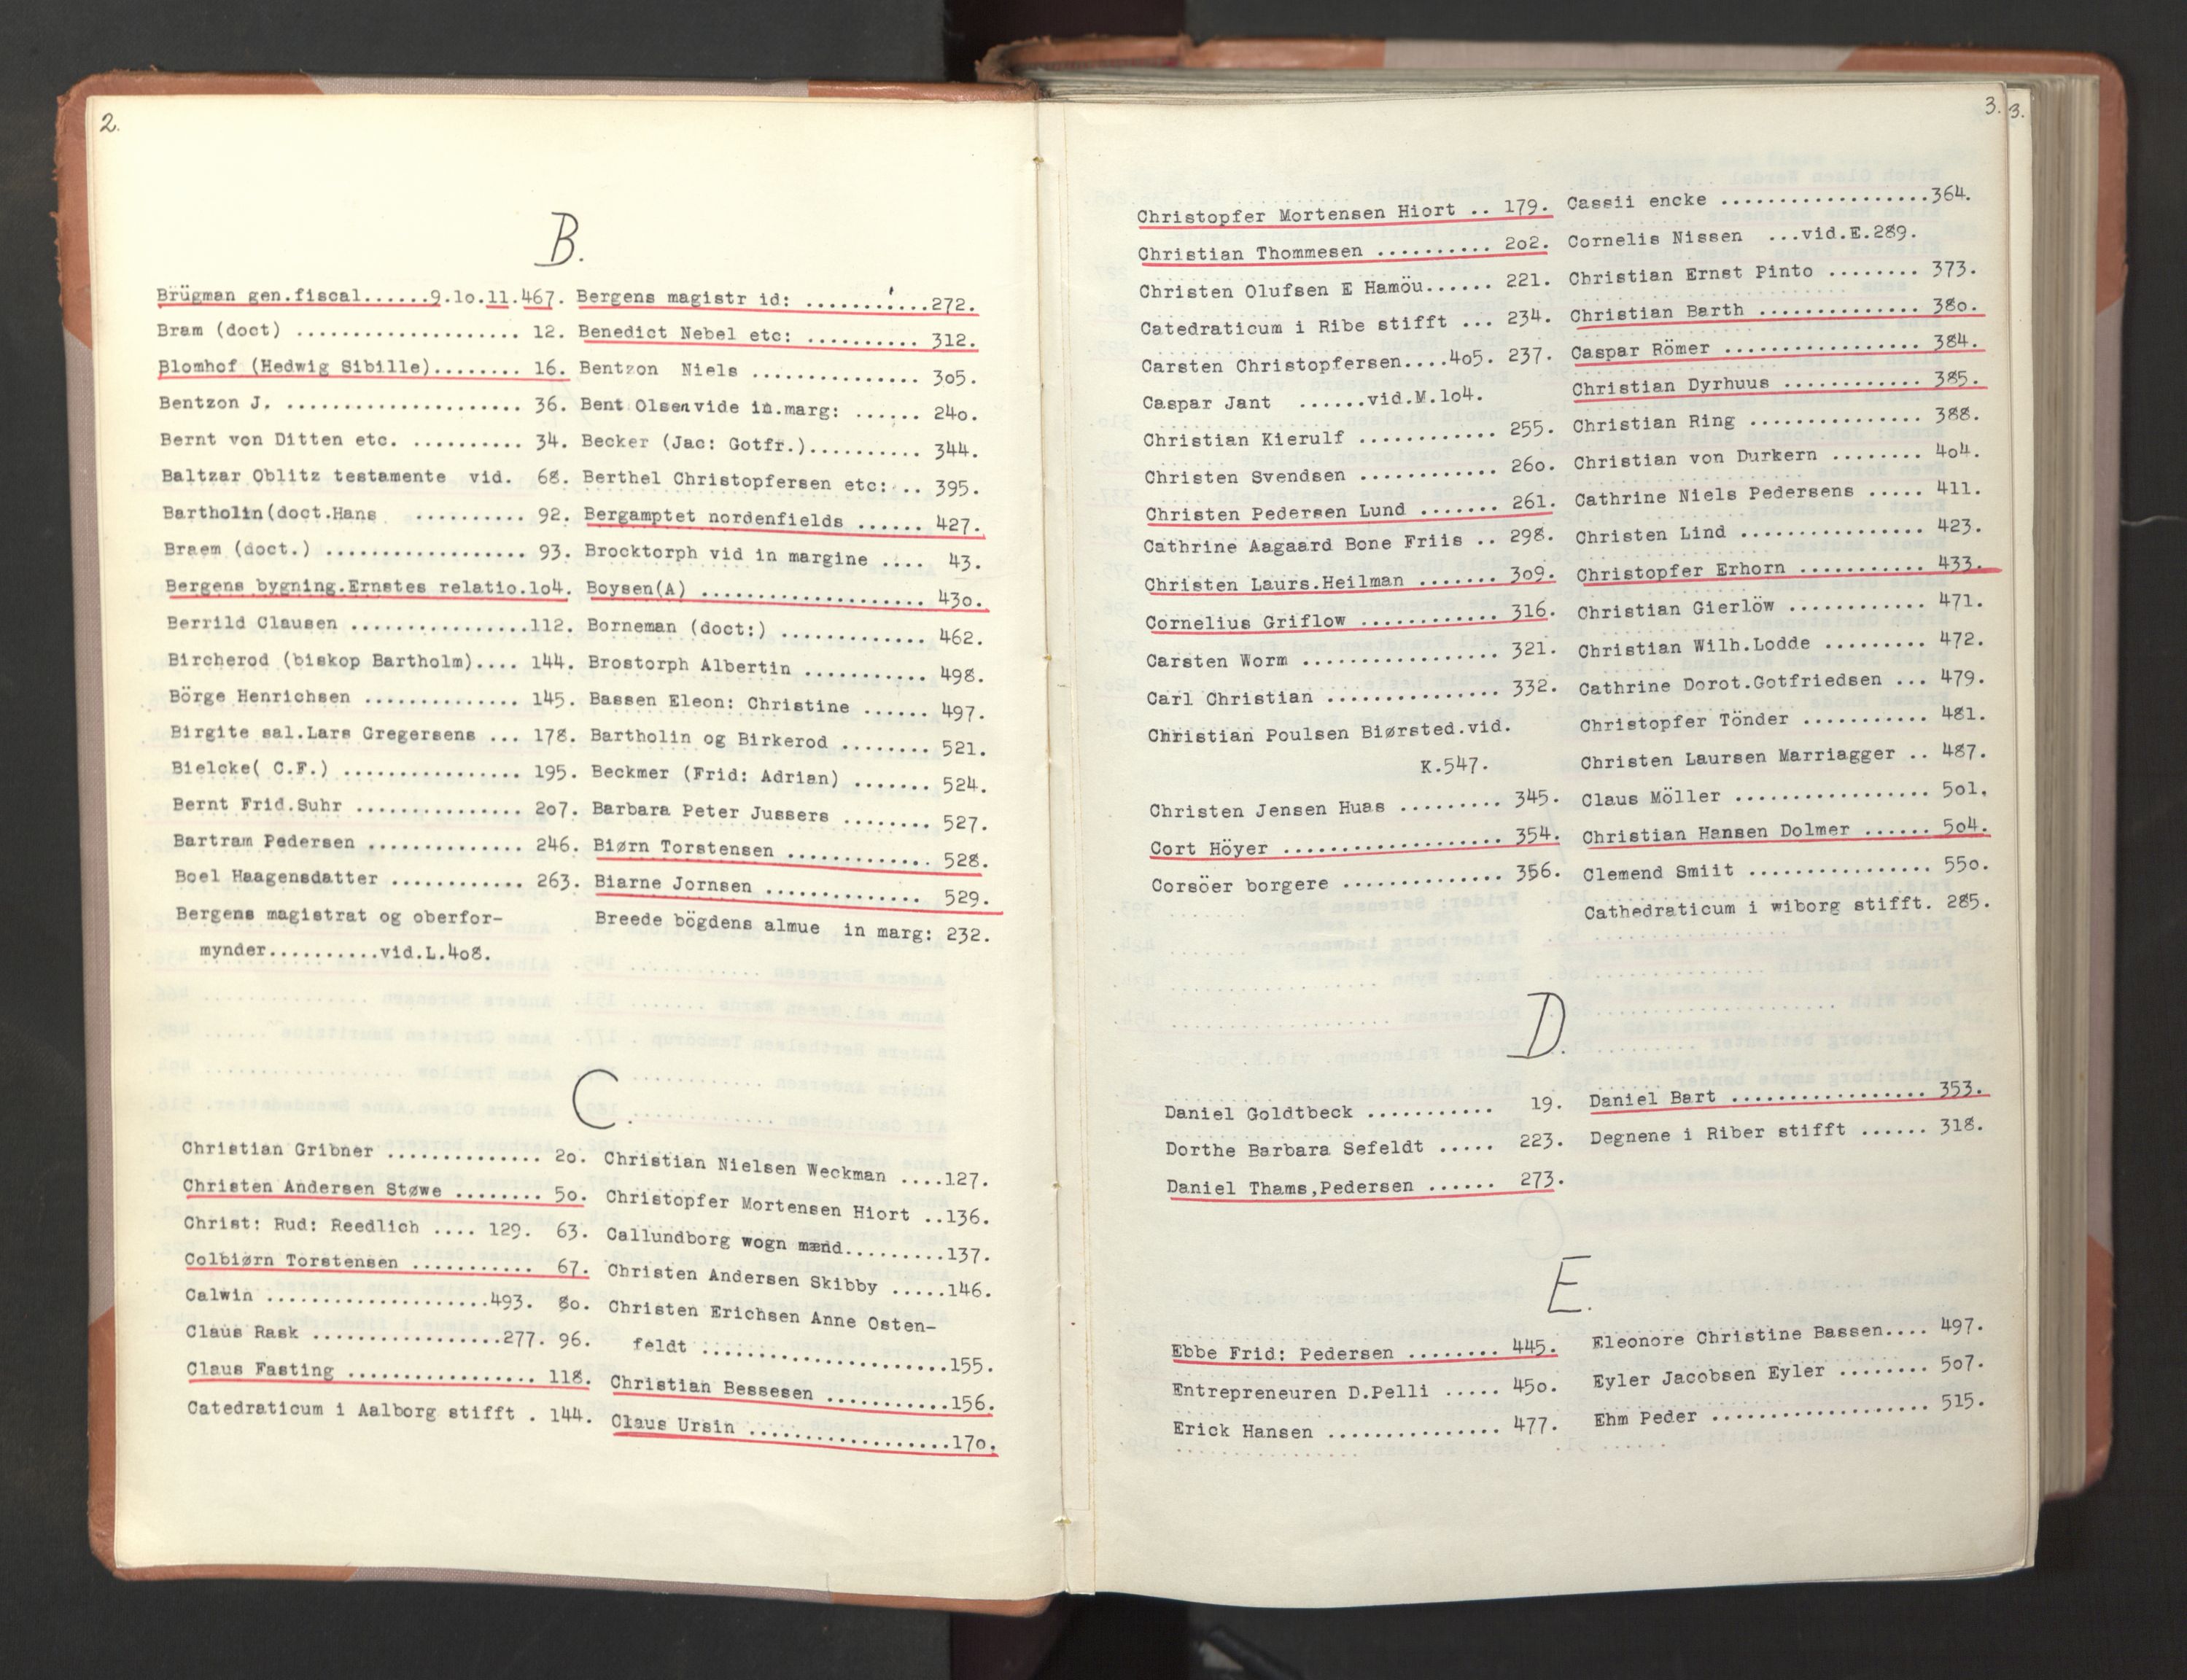 2.
B.
Brügman gen.fiscal......9.1o.11.467.
Bram (doct) ................... 12.
Blomhof (Hedwig Sibille)........ 16.
Bentzon J. ..................... 36.
Bernt von Ditten etc. .......... 34.
Baltzar Oblitz testamente vid. 68.
Bartholin(doct.Hans .......... 92.
Braem (doct.) .................. 93.
Bergens bygning.Ernstes relatio.1o4.
Berrild Clausen ................112.
Bircherod (biskop Bartholm).... 144.
Börge Henrichsen .............. 145.
Birgite sal.Lars Gregersens ... 178.
Bielcke( C.F.) ................ 195.
Bernt Frid.Suhr ............... 2o7.
Bartram Pedersen .............. 246.
Boel Haagensdatter ............ 263.
Bergens magistrat og oberfor-
mynder..........vid.L.4o8.
Bergens magistr id: ............272.
Benedict Nebel etc: .......... 312.
Bentzon Niels ............... 3o5.
Bent Olsen vide in.marg: ...... 24o.
Becker (Jac: Gotfr.).......... 344.
Berthel Christopfersen etc: .. 395.
Bergamptet nordenfields ...... 427.
Brocktorph vid in margine .... 43.
Boysen(A) .................... 43o.
Borneman (doct:) ............. 462.
Brostorph Albertin ........... 498.
Bassen Eleon: Christine ...... 497.
Bartholin og Birkerod ........ 521.
Beckmer (Frid: Adrian) ....... 524.
Barbara Peter Jussers ........ 527.
Biørn Torstensen ............. 528.
Biarne Jornsen ............... 529.
Breede bögdens almue in marg: 232.
C.
Christian Gribner .............. 2o.
Christen Andersen Støwe ........ 5o.
Christ: Rud: Reedlich .... 129. 63.
Colbiørn Torstensen ........... 67.
Calwin ....................493. 8o.
Claus Rask .................277. 96.
Claus Fasting ................. 118.
Catedraticum i Aalborg stifft . 144.
Christian Nielsen Weckman ....127.
Christopfer Mortensen Hiort ..136.
Callundborg wogn mænd.........137.
Christen Andersen Skibby .....146.
Christen Erichsen Anne Osten-
feldt ......................155.
Christian Bessesen ...........156.
Claus Ursin ..................17o.
3.
3.
Christopfer Mortensen Hiort .. 179.
Christian Thommesen .......... 2o2.
Christen Olufsen E Hamöu...... 221.
Catedraticum i Ribe stifft ... 234.
Carsten Christopfersen....4o5. 237.
Caspar Jant ......vid.M.1o4.
Christian Kierulf ............ 255.
Christen Svendsen ............ 26o.
Christen Pedersen Lund ....... 261.
Cathrine Aagaard Bone Friis .. 298.
Christen Laurs.Heilman ....... 3o9.
Cornelius Griflow ............ 316.
Carsten Worm ................. 321.
Carl Christian ............... 332.
Christian Poulsen Biørsted.vid.
K.547.
Christen Jensen Huas ......... 345.
Cort Höyer ................... 354.
Corsöer borgere .............. 356.
Cassii encke ..................364.
Cornelis Nissen ...vid.E.289.
Christian Ernst Pinto ........ 373.
Christian Barth .............. 38o.
Caspar Römer ................. 384.
Christian Dyrhuus ............ 385.
Christian Ring ............... 388.
Christian von Durkern ........ 4o4.
Cathrine Niels Pedersens ..... 411.
Christen Lind ................ 423.
Christopfer Erhorn ........... 433.
Christian Gierlöw ............ 471.
Christian Wilh.Lodde ......... 472.
Cathrine Dorot.Gotfriedsen ... 479.
Christopfer Tönder ........... 481.
Christen Laursen Marriagger .. 487.
Claus Möller ................. 5o1.
Christian Hansen Dolmer ...... 5o4.
Clemend Smiit ................ 55o.
Cathedraticum i wiborg stifft. 285.
D.
Daniel Goldtbeck ........... 19.
Dorthe Barbara Sefeldt ..... 223.
Daniel Thams,Pedersen ...... 273.
Daniel Bart ................. 353.
Degnene i Riber stifft ...... 318.
E.
Ebbe Frid: Pedersen ........ 445.
Entrepreneuren D.Pelli ..... 45o.
Erick Hansen ............... 477.
Eleonore Christine Bassen.... 497.
Eyler Jacobsen Eyler ........ 5o7.
Ehm Peder ................... 515.